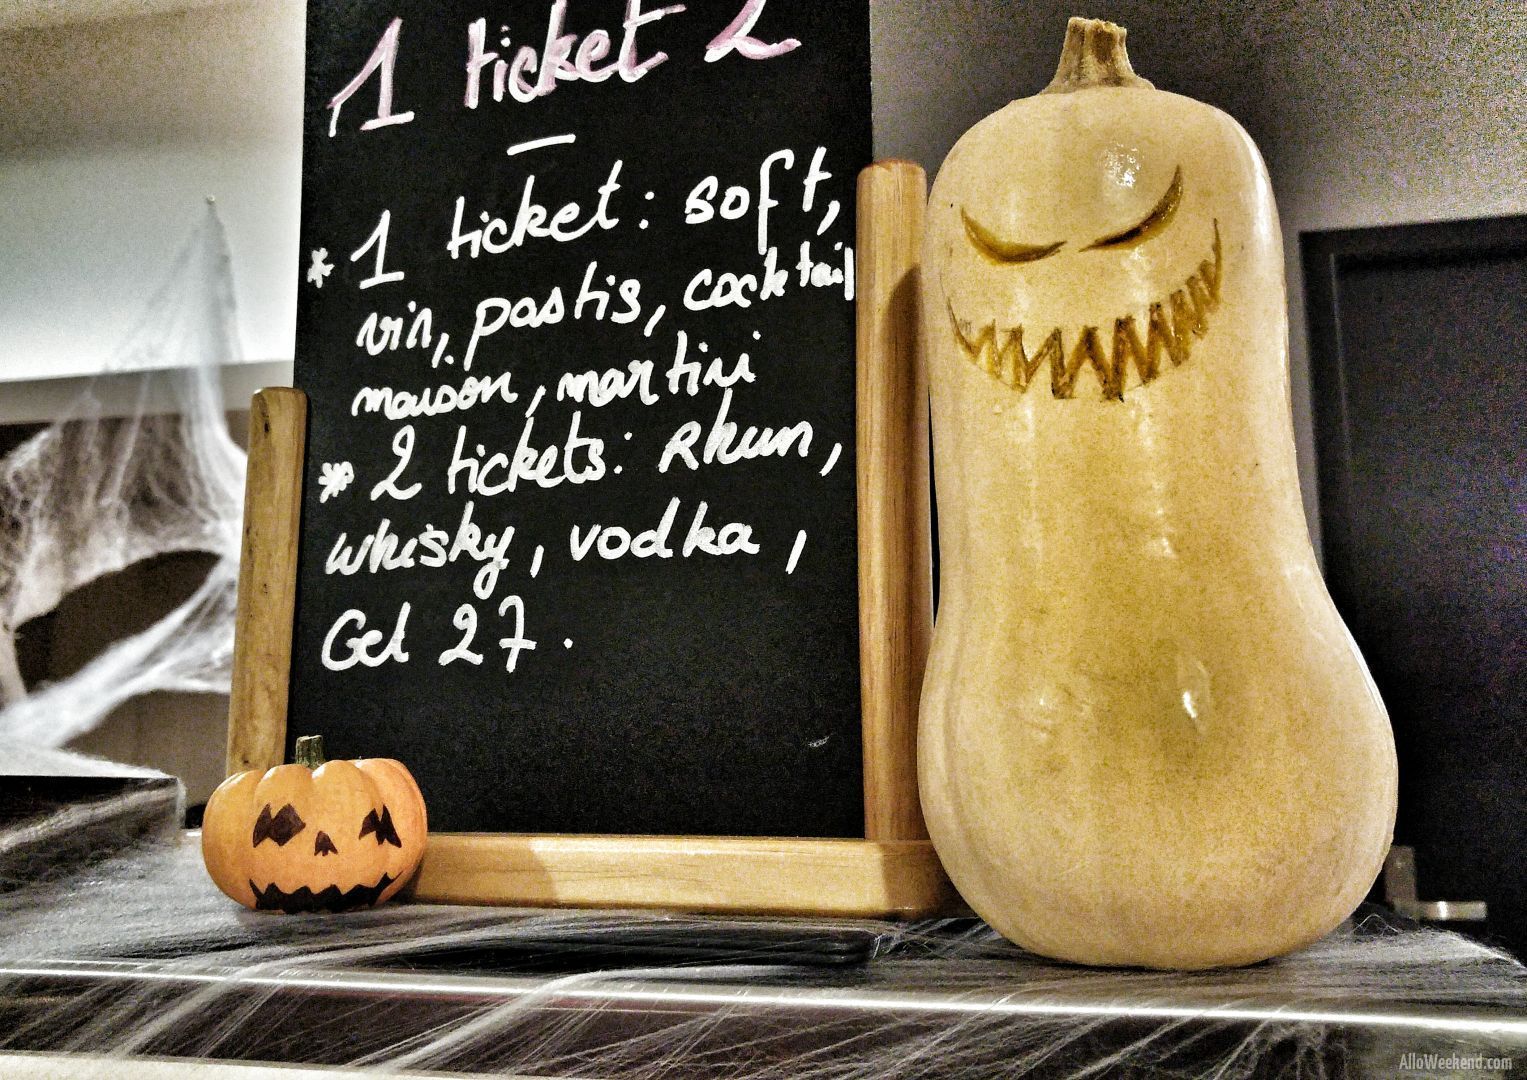 1 ticket 2
* 1 ticket : soft,
vin, pastis, cocktail
maison, martini
* 2 tickets : Rhum,
whisky, vodka,
Get 27.
AlloWeekend.com